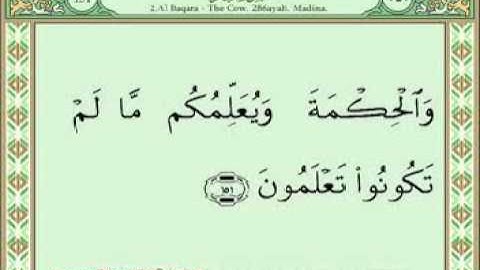 2.Al Baqara - The Cow. 286ayah. Madina.
وَٱلْحِكْمَةَ وَيُعَلِّمُكُم مَّا لَمْ
تَكُونُوا۟ تَعْلَمُونَ ١٥١